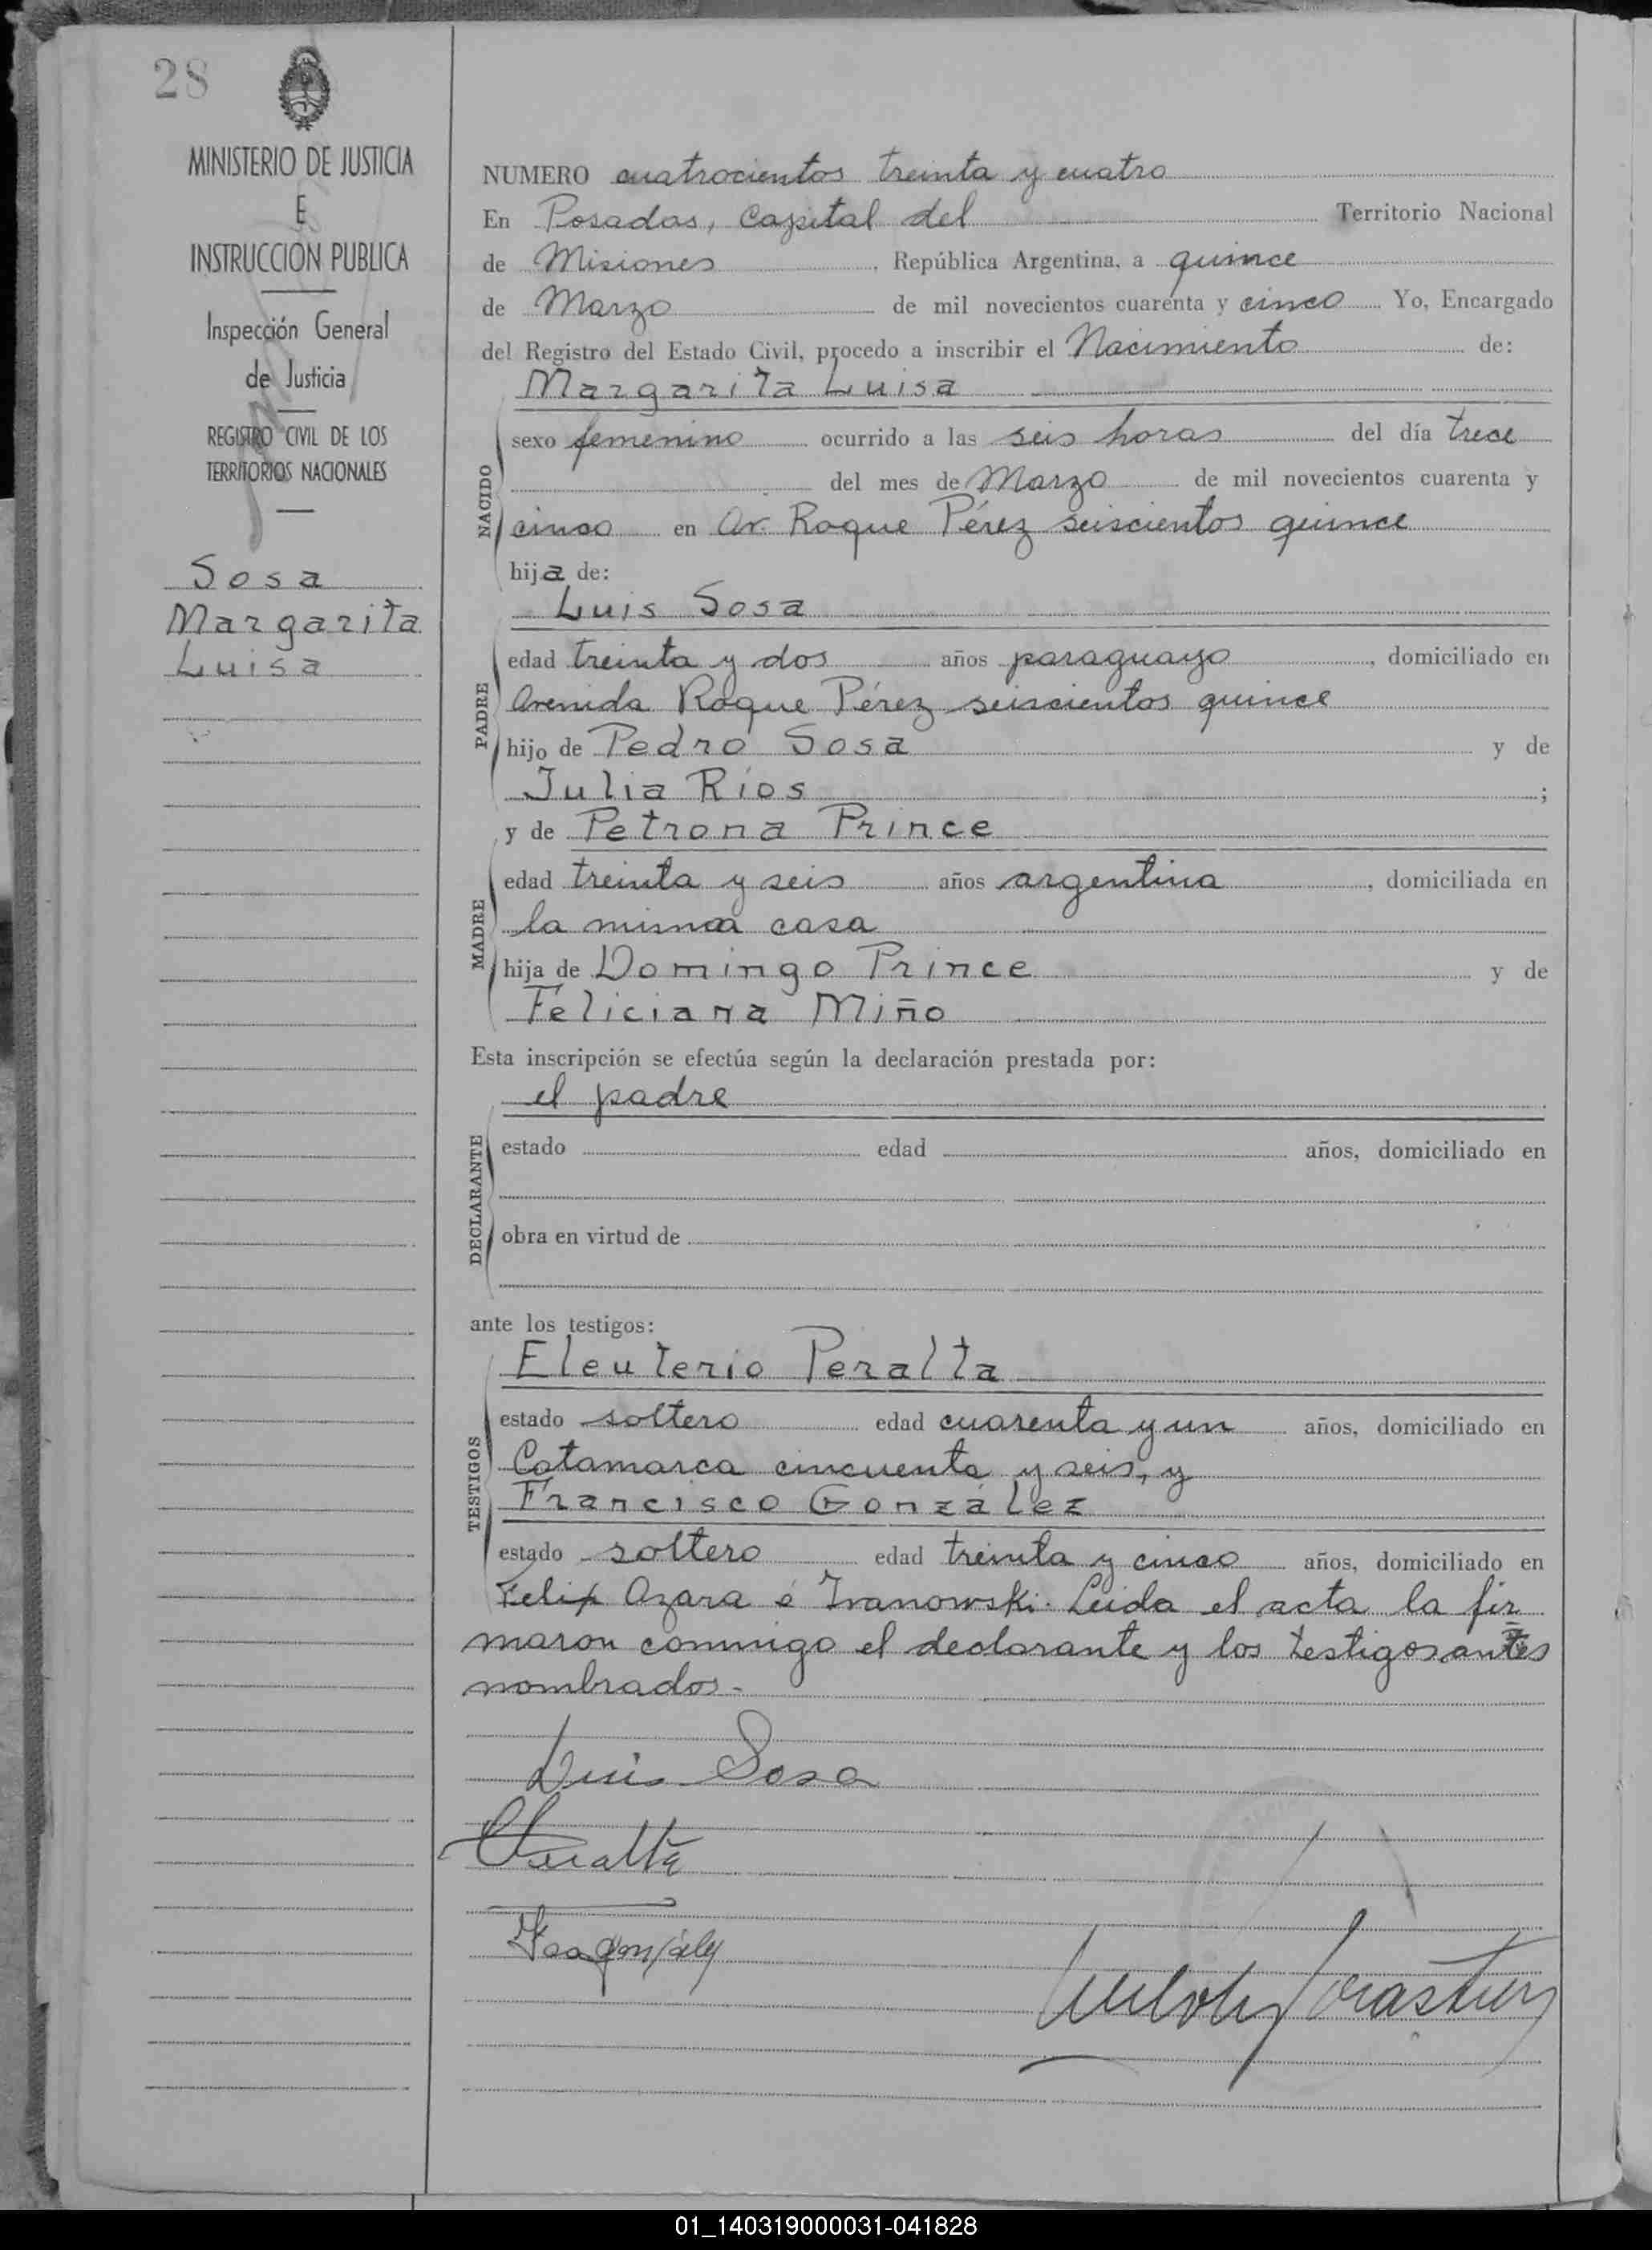 28
MINISTERIO DE JUSTICIA
E
INSTRUCCIÓN PUBLICA
Inspección General
de Justicia
REGISTRO CIVIL DE LOS
TERRITORIOS NACIONALES
Sosa
Margarita
Luisa
NUMERO cuatrocientos treinta y cuatro
En Posadas, Capital del Territorio Nacional
de Misiones, República Argentina, a quince
de Marzo de mil novecientos cuarenta y cinco Yo, Encargado
del Registro del Estado Civil, procedo a inscribir el Nacimiento de:
Margarita Luisa
NACIDO
sexo femenino ocurrido a las seis horas del día trece
del mes de Marzo de mil novecientos cuarenta y
cinco en Av. Roque Pérez seiscientos quince
hija de:
Luis Sosa
PADRE
edad treinta y dos años paraguayo, domiciliado en
Avenida Roque Pérez seiscientos quince
hijo de Pedro Sosa y de
Julia Ríos;
y de Petrona Prince
MADRE
edad treinta y seis años argentina, domiciliada en
la misma casa
hija de Domingo Prince y de
Feliciana Miño
Esta inscripción se efectúa según la declaración prestada por:
el padre
DECLARANTE
estado edad años, domiciliado en
obra en virtud de
ante los testigos:
Eleuterio Peralta
TESTIGOS
estado soltero edad cuarenta y un años, domiciliado en
Catamarca cincuenta y seis, y
Francisco González
estado soltero edad treinta y cinco años, domiciliado en
Azara é Ivanowski. Leida el acta la fir=
maron conmigo el declarante y los testigos antes
nombrados.-
Luis Sosa
EPeralta
01_140319000031-041828